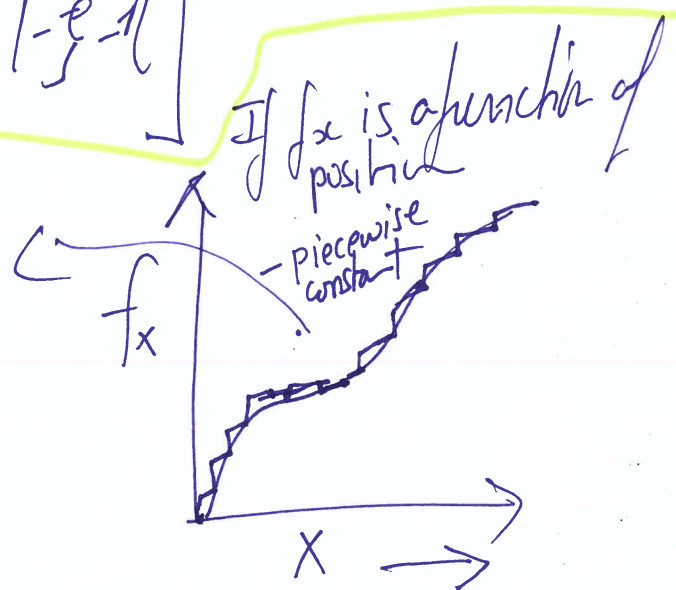 If fx is a function of
position
- piecewise
constant
fx
X